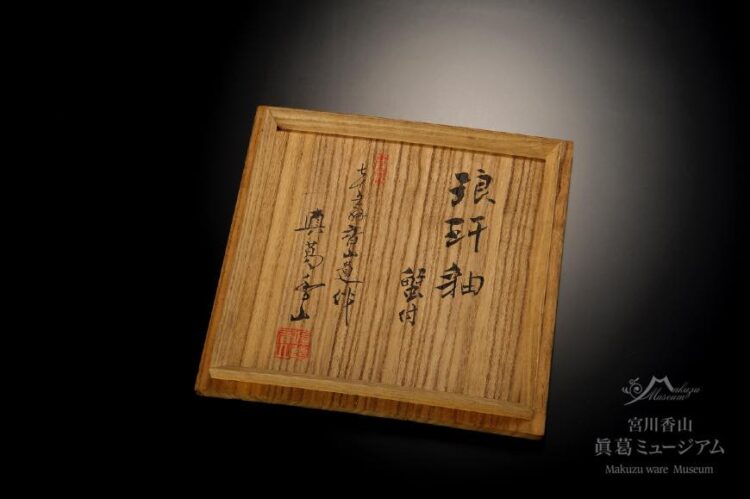 琅玕釉
蟹付
香山
真葛香山
Makuzu
Museum
宮川香山
眞葛ミュージアム
Makuzu ware Museum